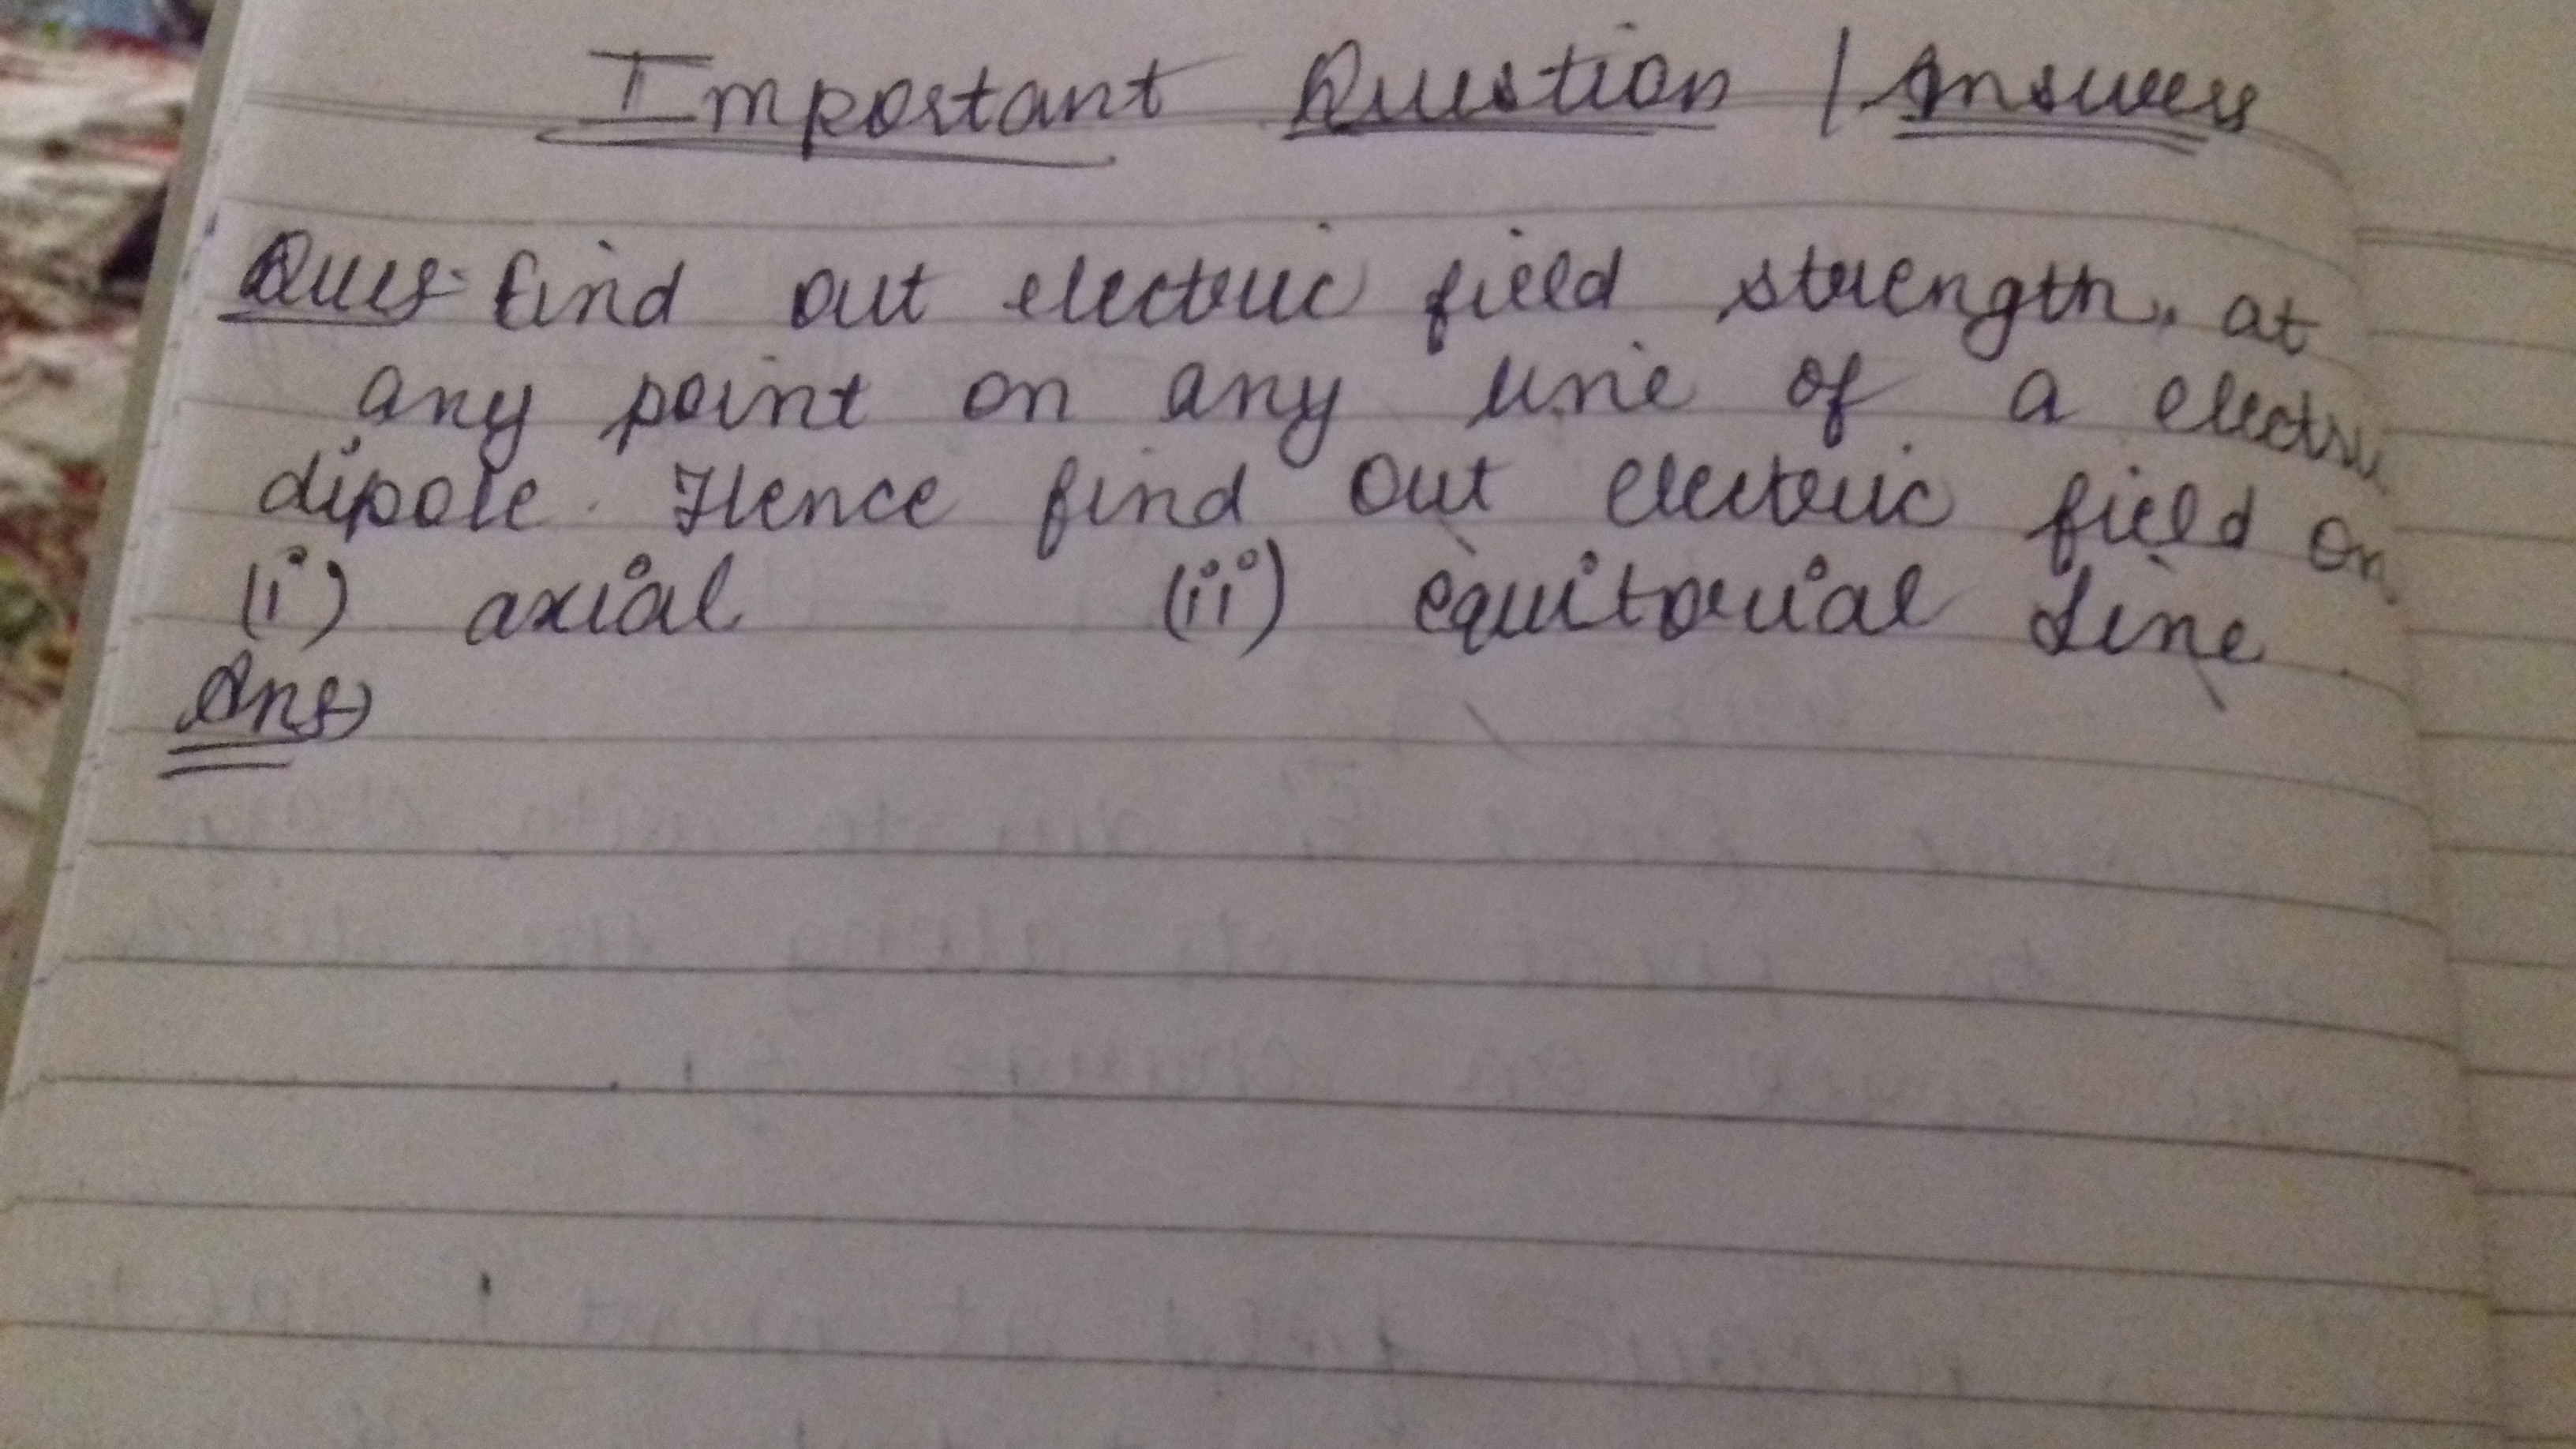 Important Question / Answers
Ques- find out electric field strength, at
any point on any line of a electric
dipole. Hence find out electric field on
(i) axial (ii) equitorial line
Ans)